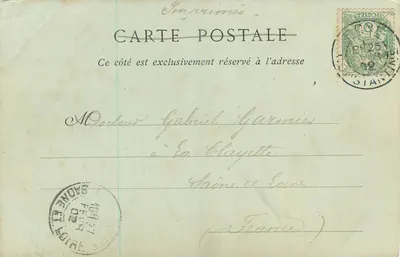 Imprimés
CARTE POSTALE
Ce côté est exclusivement réservé à l'adresse
CONSTANTINE
25
02
Monsieur Gabriel Garnier
à La Clayette
Saône et Loire
France
27
02
SAONE ET LOIRE